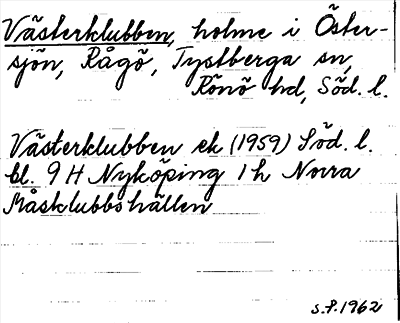 Västerklubben, holme i Öster-
sjön, Rågö, Tystberga sn,
Rönö hd, Söd. l.
Västerklubben ek (1959) Söd. l.
bl. 9 H Nyköping 1 h Norra
Måsklubbshällen
S.P. 1962